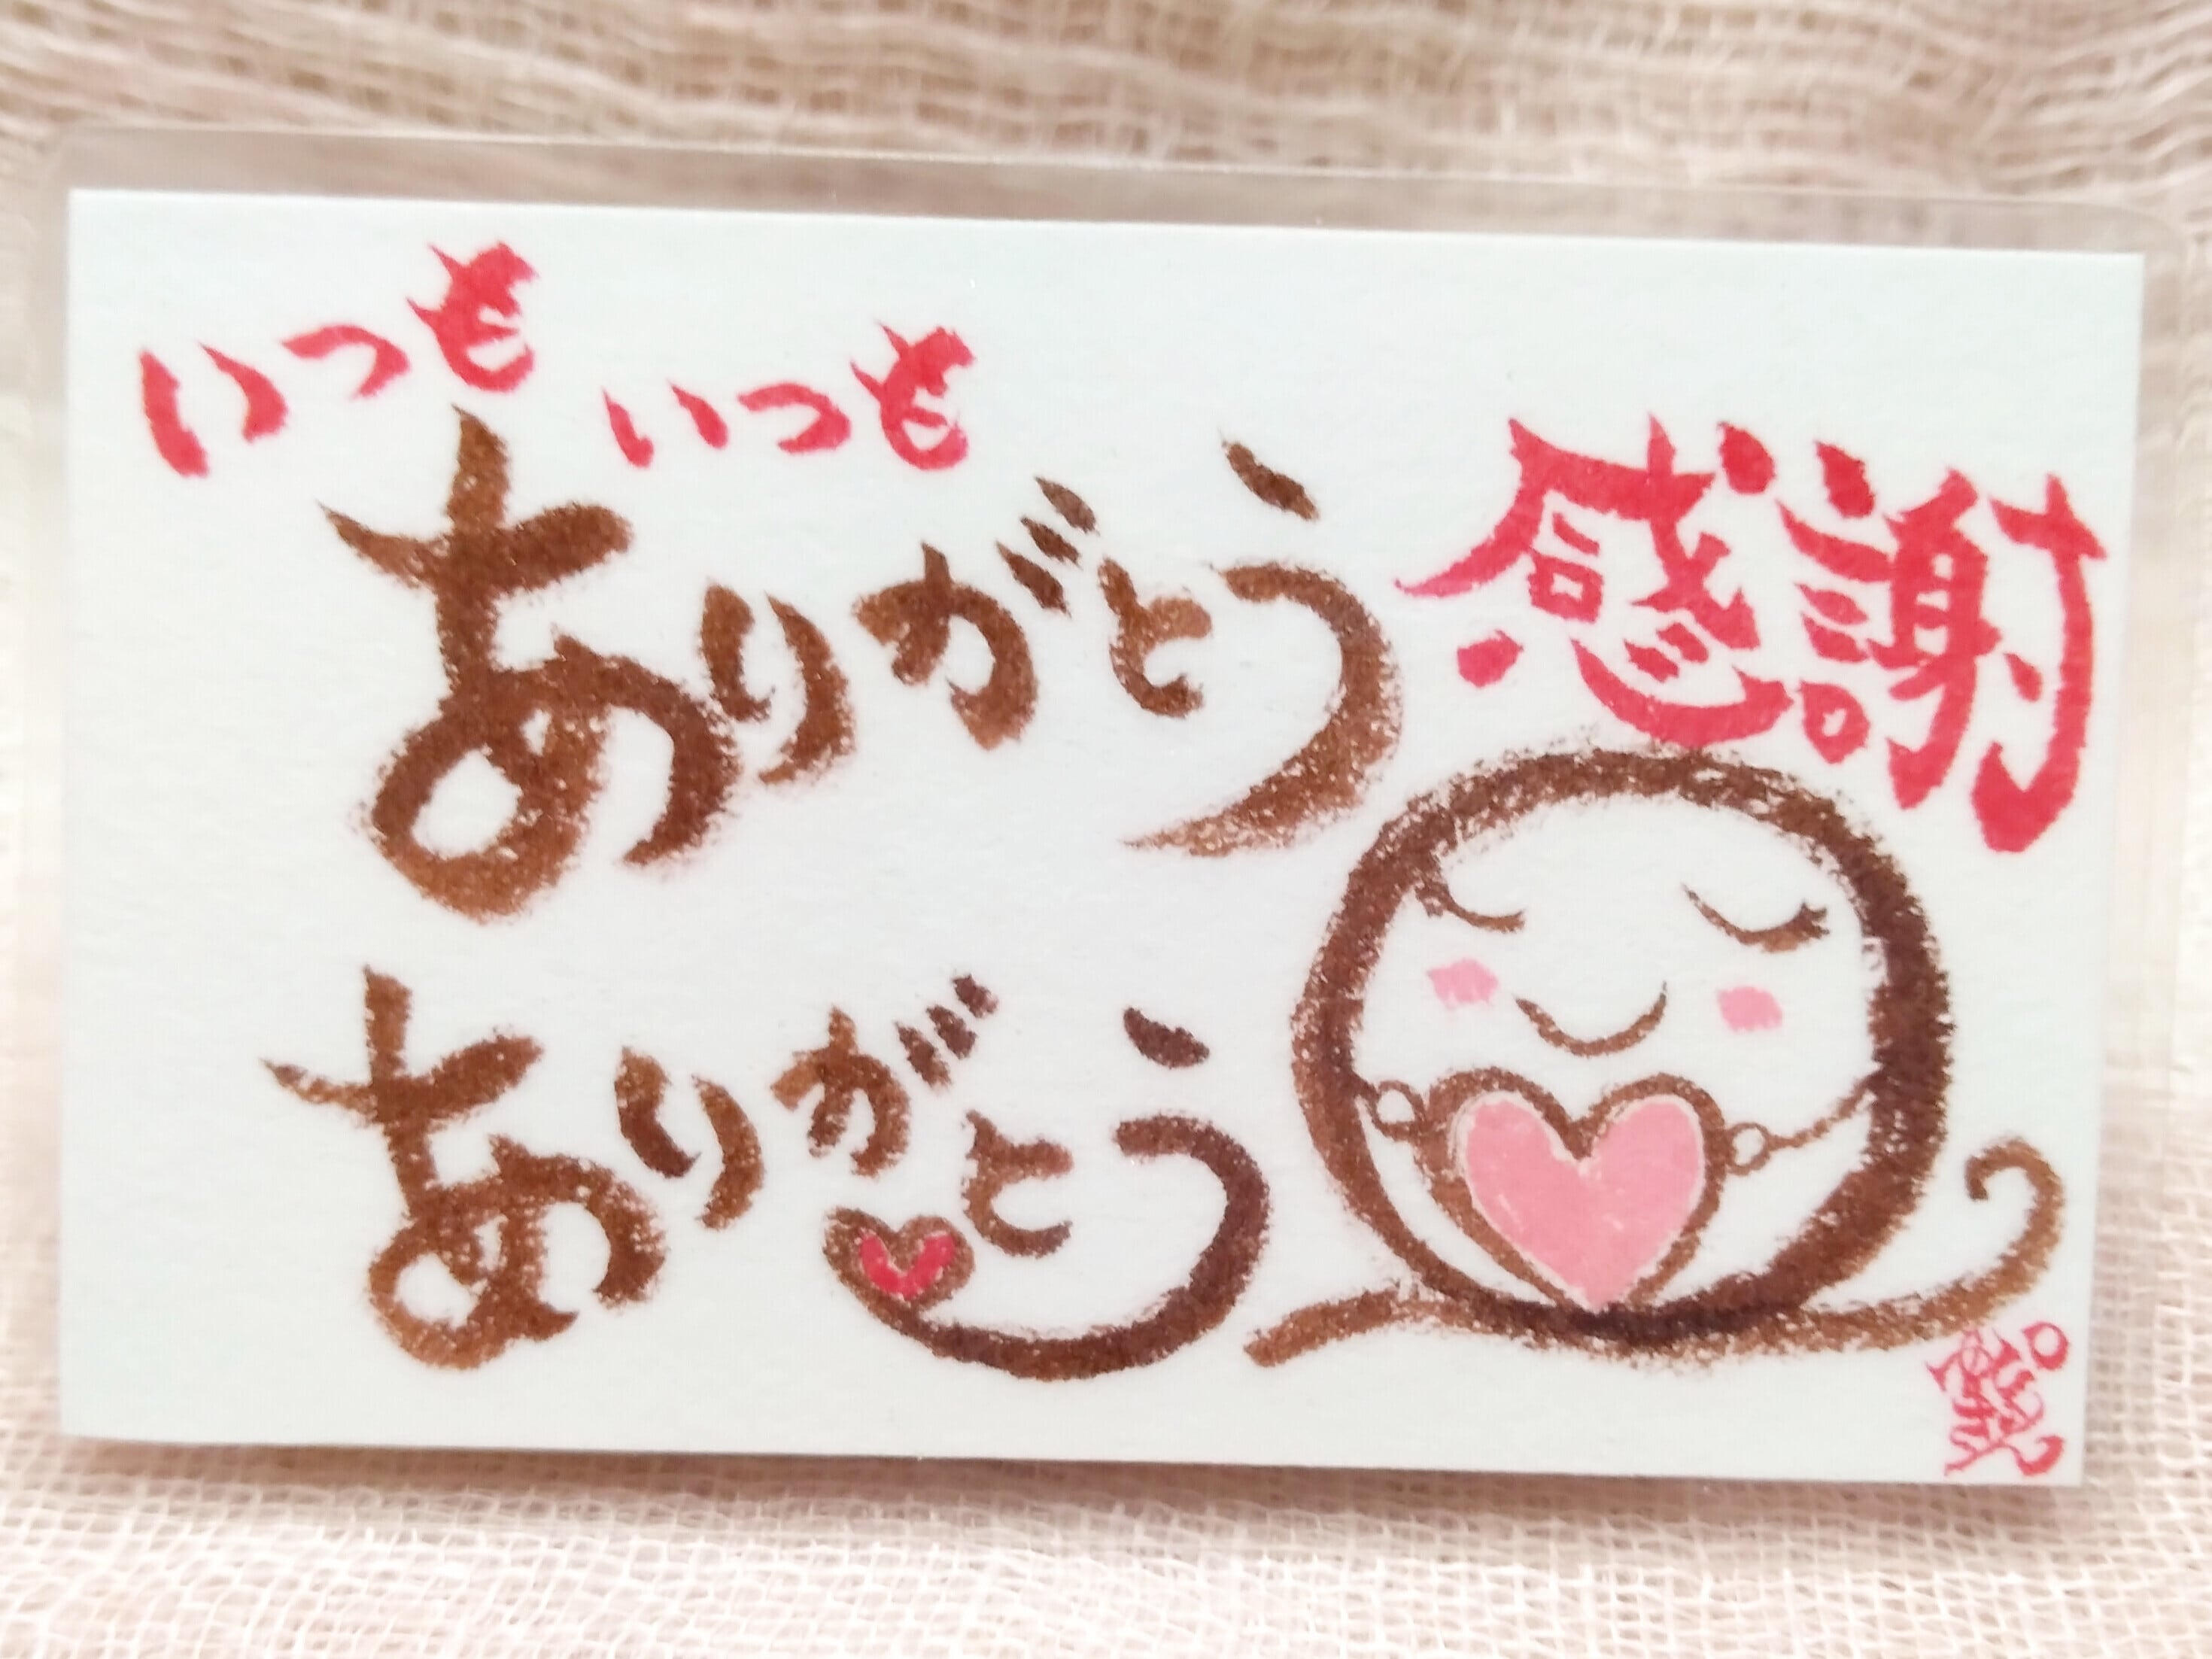 いつも いつも
ありがとう
感謝
ありがとう